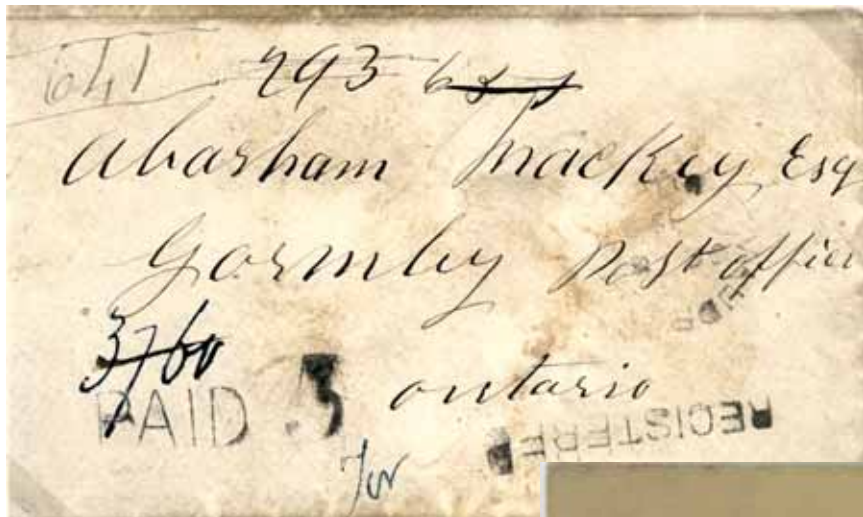 293
Abarsham Mackey Esq
Gormley Post office
3/60
PAID 3
ontario
REGISTERED